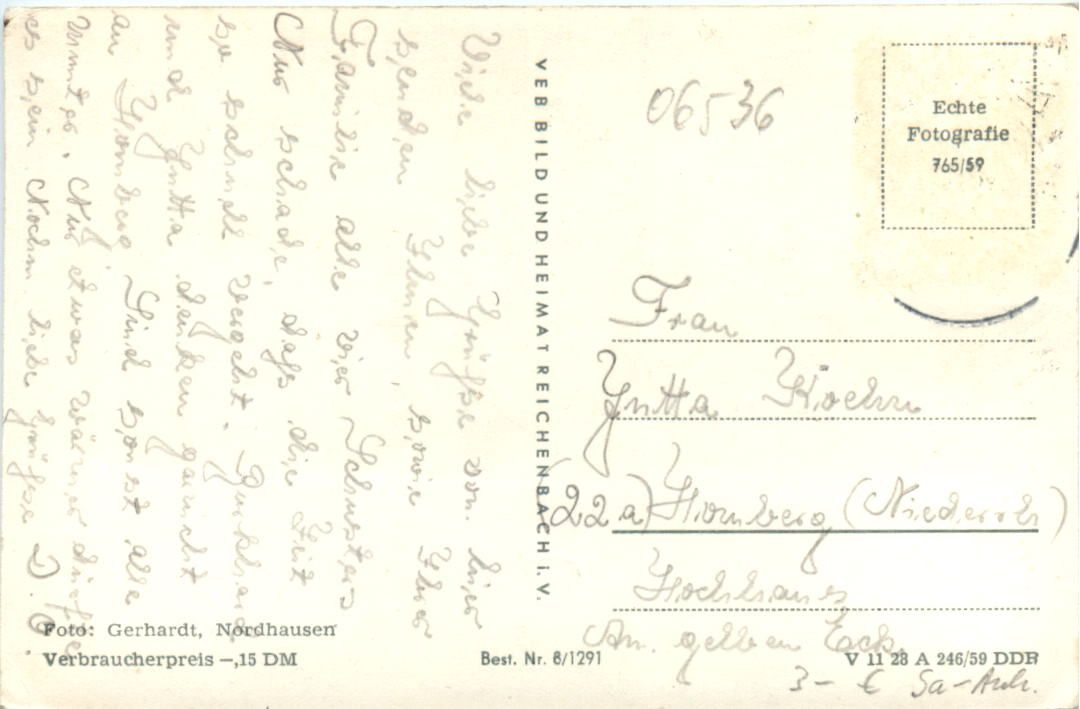 Viele liebe Grüße von hier
senden Ihnen, sowie Ihrer
Familie alle vier Schusters
Nur schade, daß die Zeit
so schnell vergeht.
und Jutta denken garnicht
an Homberg Sind sonst alle
munter. Nur etwas wärmer dürfte
es sein. Nochm. liebe Grüße D. O.
Foto: Gerhardt, Nordhausen
Verbraucherpreis –,15 DM
VEB BILD UND HEIMAT REICHENBACH i. V.
Best. Nr. 8/1291
06536
Echte
Fotografie
765/59
Frau
Jutta Köehn
(22a) Homberg (Niederrh)
Hochhaus
Am gelben Eck.
V 11 28 A 246/59 DDR
3- € Sa-Anh.